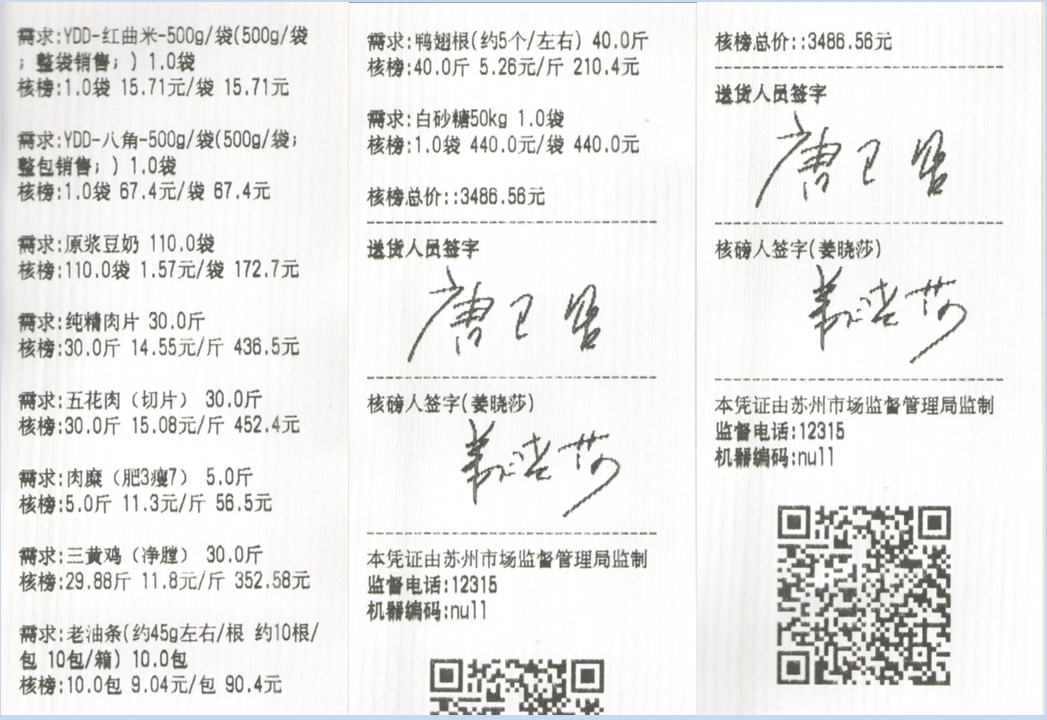 需求:YDD-红曲米-500g/袋(500g/袋
；整袋销售；) 1.0袋
核榜:1.0袋 15.71元/袋 15.71元
需求:YDD-八角-500g/袋(500g/袋；
整包销售；) 1.0袋
核榜:1.0袋 67.4元/袋 67.4元
需求:原浆豆奶 110.0袋
核榜:110.0袋 1.57元/袋 172.7元
需求:纯精肉片 30.0斤
核榜:30.0斤 14.55元/斤 436.5元
需求:五花肉（切片） 30.0斤
核榜:30.0斤 15.08元/斤 452.4元
需求:肉糜（肥3瘦7） 5.0斤
核榜:5.0斤 11.3元/斤 56.5元
需求:三黄鸡（净膛） 30.0斤
核榜:29.88斤 11.8元/斤 352.58元
需求:老油条(约45g左右/根 约10根/
包 10包/箱) 10.0包
核榜:10.0包 9.04元/包 90.4元
需求:鸭翅根(约5个/左右) 40.0斤
核榜:40.0斤 5.26元/斤 210.4元
需求:白砂糖50kg 1.0袋
核榜:1.0袋 440.0元/袋 440.0元
核榜总价::3486.56元
送货人员签字
核磅人签字(姜晓莎)
姜晓莎
本凭证由苏州市场监督管理局监制
监督电话:12315
机器编码:null
核榜总价::3486.56元
送货人员签字
核磅人签字(姜晓莎)
姜晓莎
本凭证由苏州市场监督管理局监制
监督电话:12315
机器编码:null